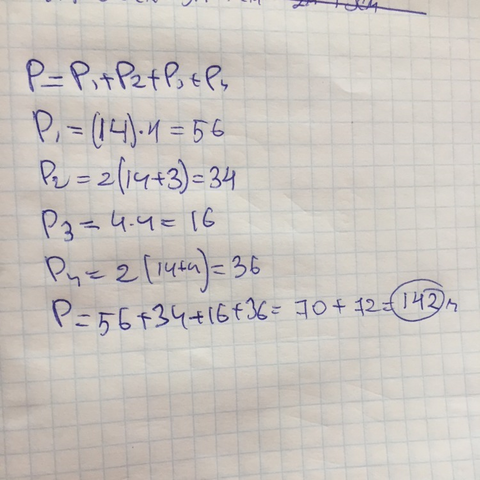 P = P₁ + P₂ + P₃ + P₄
P₁ = (14) · 4 = 56
P₂ = 2(14+3) = 34
P₃ = 4 · 4 = 16
P₄ = 2(14+4) = 36
P = 56 + 34 + 16 + 36 = 70 + 72 = 142